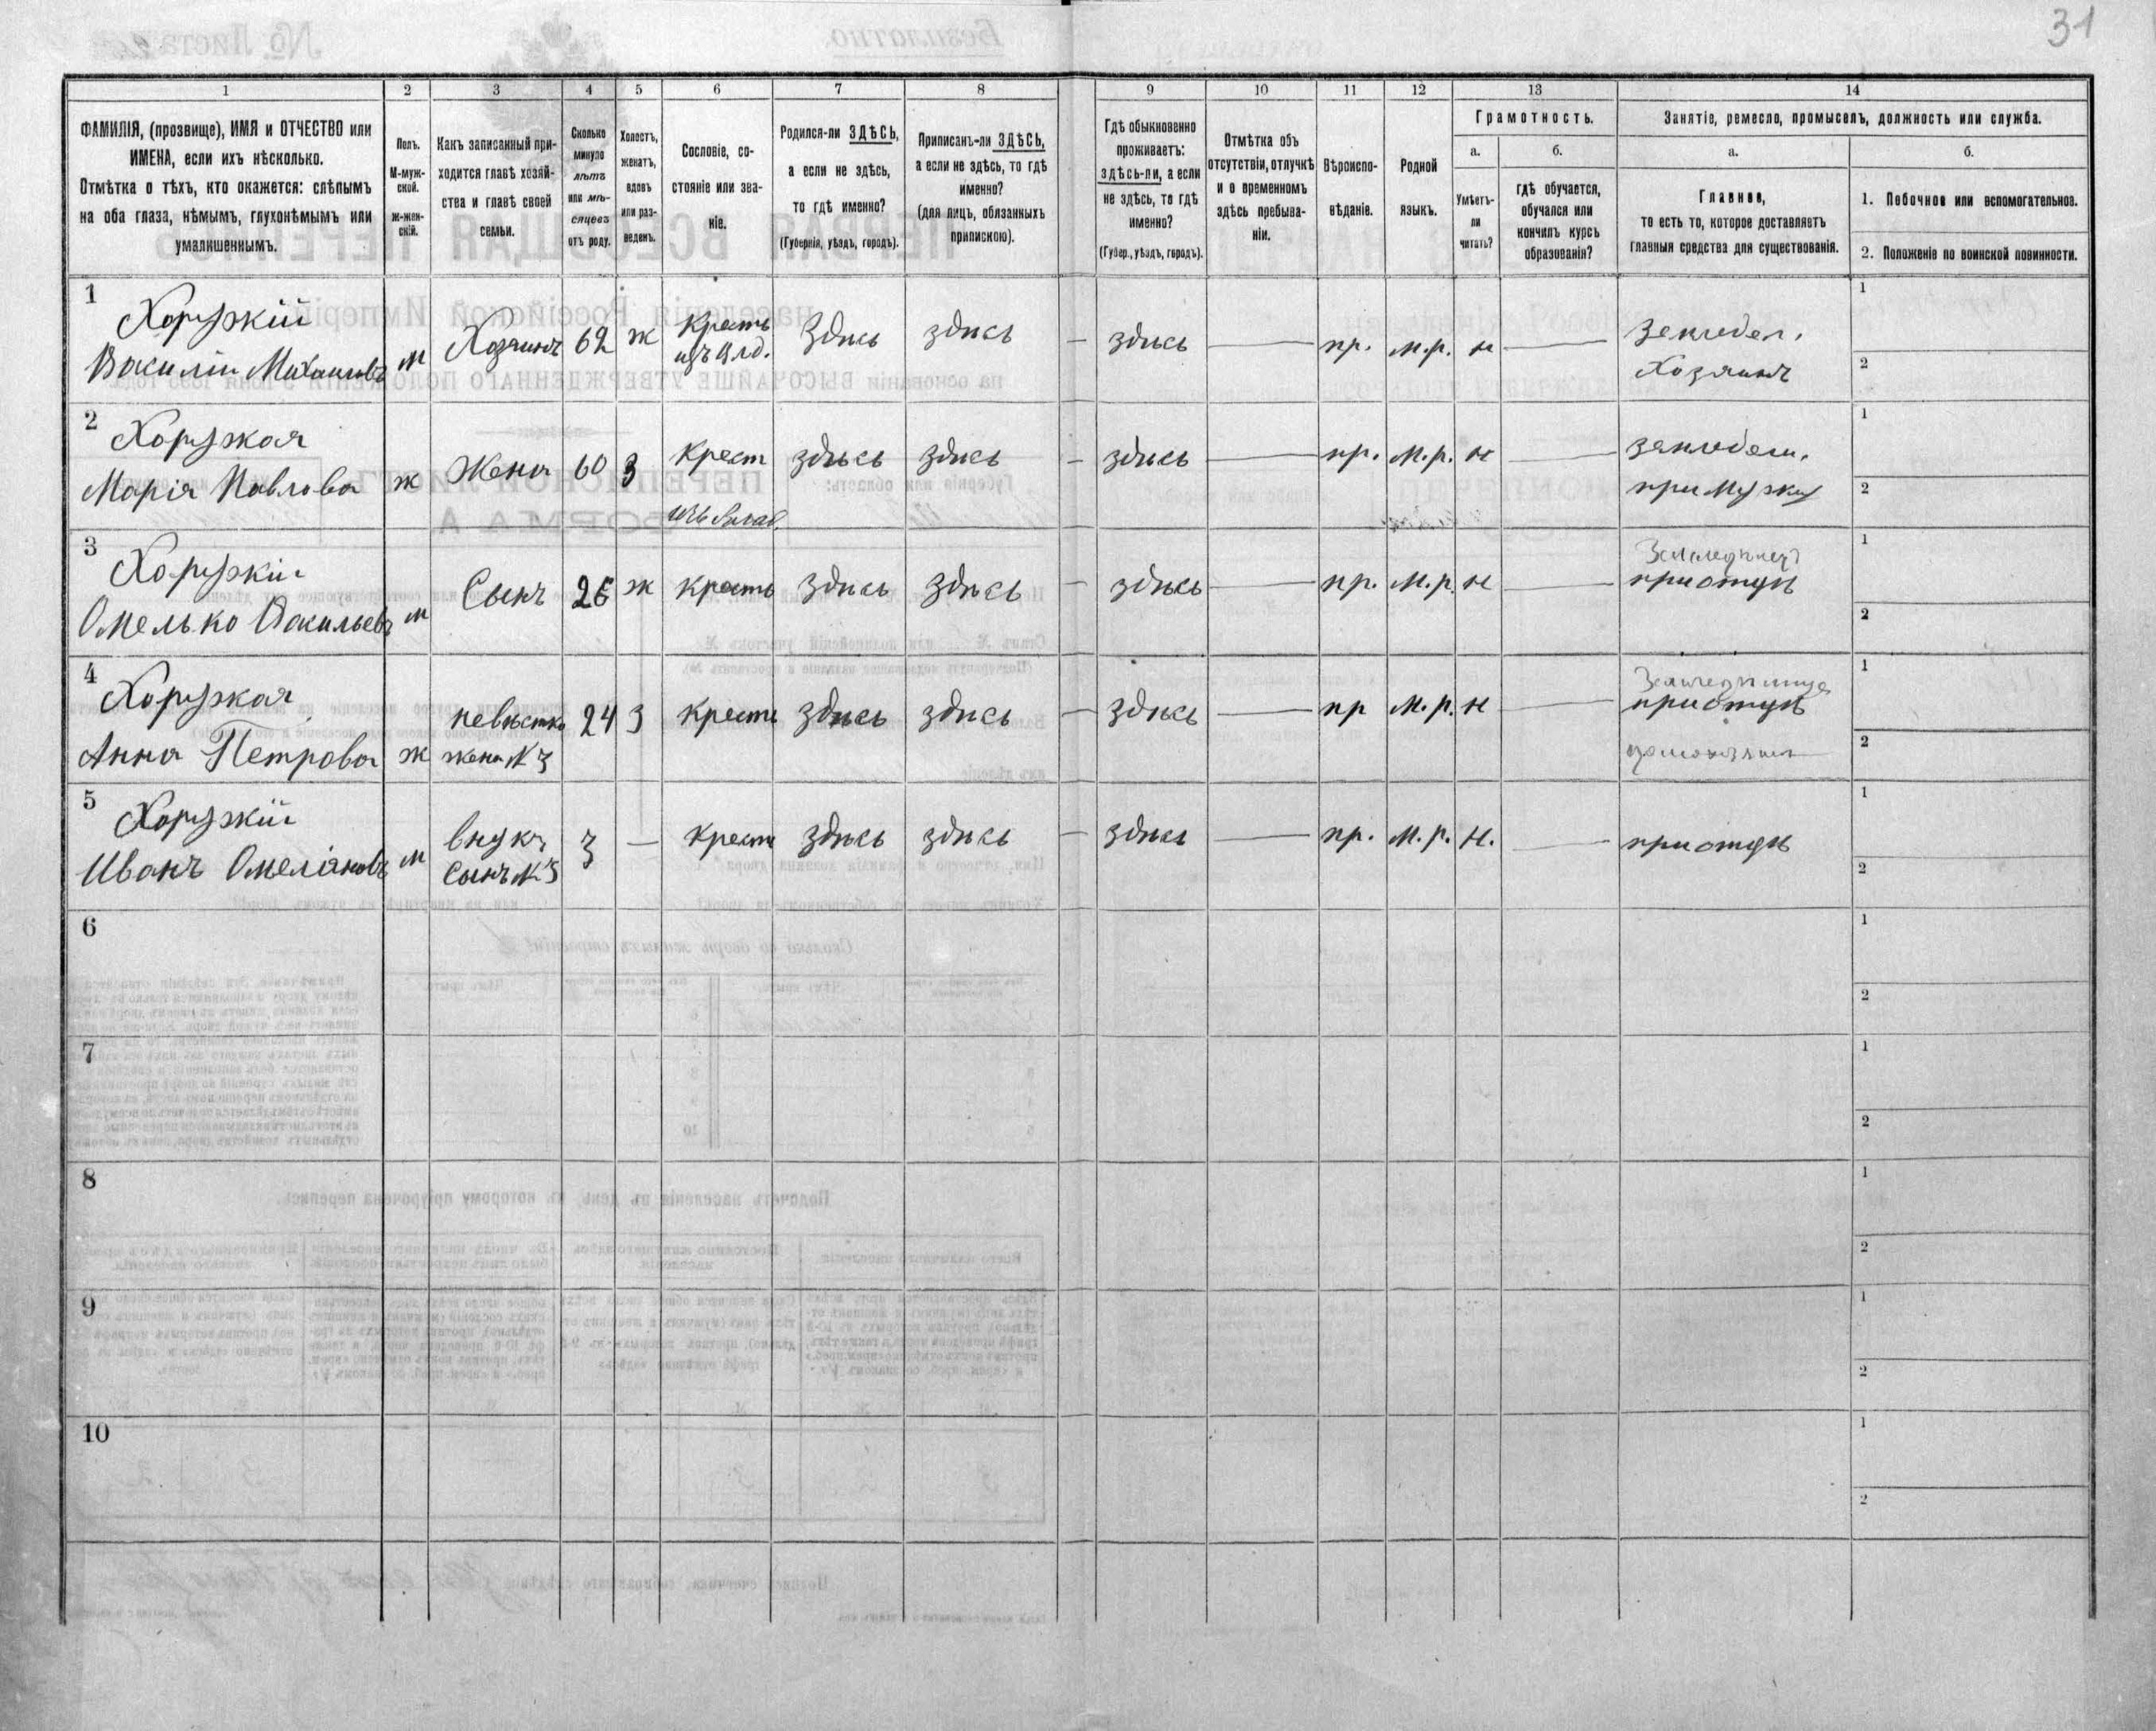 31
1
2
3
4
5
6
7
8
9
10
11
12
13
14
ФАМИЛІЯ, (прозвище), ИМЯ и ОТЧЕСТВО или
ИМЕНА, если ихъ нѣсколько.
Отмѣтка о тѣхъ, кто окажется: слѣпымъ
на оба глаза, нѣмымъ, глухонѣмымъ или
умалишеннымъ.
Полъ.
М-муж-
ской.
ж-жен-
скій.
Какъ записанный при-
ходится главѣ хозяй-
ства и главѣ своей
семьи.
Сколько
минуло
лѣтъ
или мѣ-
сяцевъ
отъ роду.
Холостъ,
женатъ,
вдовъ
или раз-
веденъ.
Сословіе, со-
стояніе или зва-
ніе.
Родился-ли ЗДѢСЬ,
а если не здѣсь,
то гдѣ именно?
(Губернія, уѣздъ, городъ).
Приписанъ-ли ЗДѢСЬ,
а если не здѣсь, то гдѣ
именно?
(для лицъ, обязанныхъ
припискою).
Гдѣ обыкновенно
проживаетъ:
здѣсь-ли, а если
не здѣсь, то гдѣ
именно?
(Губер., уѣздъ, городъ).
Отмѣтка объ
отсутствіи, отлучкѣ
и о временномъ
здѣсь пребыва-
ніи.
Вѣроиспо-
вѣданіе.
Родной
языкъ.
Грамотность.
а.
Умѣетъ-
ли
читать?
б.
гдѣ обучается,
обучался или
кончилъ курсъ
образованія?
Занятіе, ремесло, промыселъ, должность или служба.
а.
Главное,
то есть то, которое доставляетъ
главныя средства для существованія.
б.
1. Побочное или вспомогательное.
2. Положеніе по воинской повинности.
1
Хоружкій
Василій Михаиловъ
м
Хозяинъ
62
ж
Кресть
изъ влад.
Здѣсь
здѣсь
—
здѣсь
—
пр.
м.р.
н
—
земледел.
Хозяинъ
1
2
2
Хоружкая
Марія Павлова
ж
Жена
60
З
Крест
изъ влад
здѣсь
здѣсь
—
здѣсь
—
пр.
м.р.
н
—
земледел.
при Мужу
1
2
3
Хоружкій
Омелько Васильевъ
м
Сынъ
26
ж
Кресть
Здѣсь
здѣсь
—
здѣсь
—
пр.
м.р.
н
—
Земледѣлецъ
при отцѣ
1
2
4
Хоружкая
Анна Петрова
ж
невѣстка
жена №3
24
З
Крестъ
Здѣсь
здѣсь
—
здѣсь
—
пр
м.р.
н
—
при отцѣ
1
2
5
Хоружкій
Иванъ Омеліановъ
м
внукъ
сынъ №3
3
—
Крестъ
здѣсь
здѣсь
—
здѣсь
—
пр.
м.р.
н.
—
при отцѣ
1
2
6
1
2
7
1
2
8
1
2
9
1
2
10
1
2